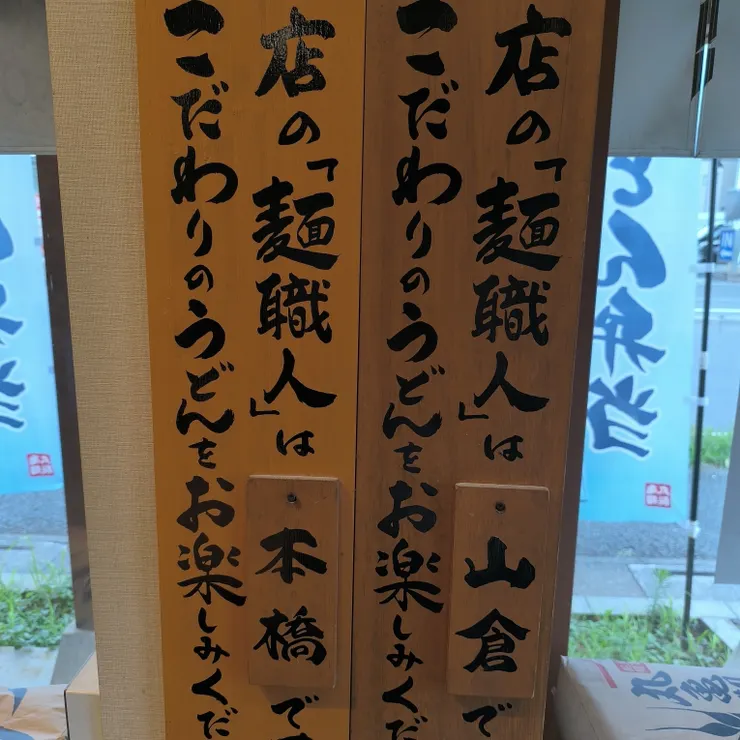 店の「麺職人」は
山倉で
こだわりのうどんをお楽しみくだ
店の「麺職人」は
本橋です
こだわりのうどんをお楽しみくだ
どん弁当